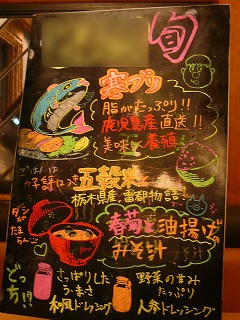 旬
寒ブリ
脂がたっぷり!!
鹿児島産直送!!
美味し 養殖
ごはんは
五穀米
栃木県産
春菊と油揚げの
みそ汁
どっち!?
さっぱりした
うまさ
和風ドレッシング
野菜の甘み
たっぷり
人参ドレッシング